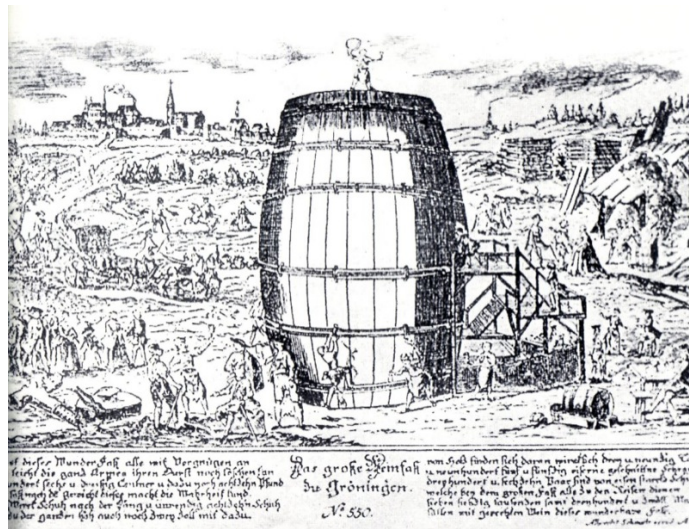 dieser Wunder Faß alle mit Vergnügen an
leicht die gantz Armee ihren Durst noch löschen kan
sechs u dreißig Centner u dadu noch achtzehn Pfund
dieses macht die Wahrheit kund
Werck Schuh nach der Läng u inwendig achtzehn Schuh
du der gantzen Höh auch noch zwey Zoll mit dadu.
Das große Weinfaß
zu Gröningen.
Nº 550.
von Holz finden sich daran wircklich drey u neundig
u neunhundert fünf u fünfzig eiserne
dreyhundert u sechzehn Paar sind von eisen starcke
welche bey dem großen Faß alle zu den Reifen dienen
sieben tausend samt dreyhundert u zwölf Maß
füllen mit gerechten Wein dieses wunderbare Faß.